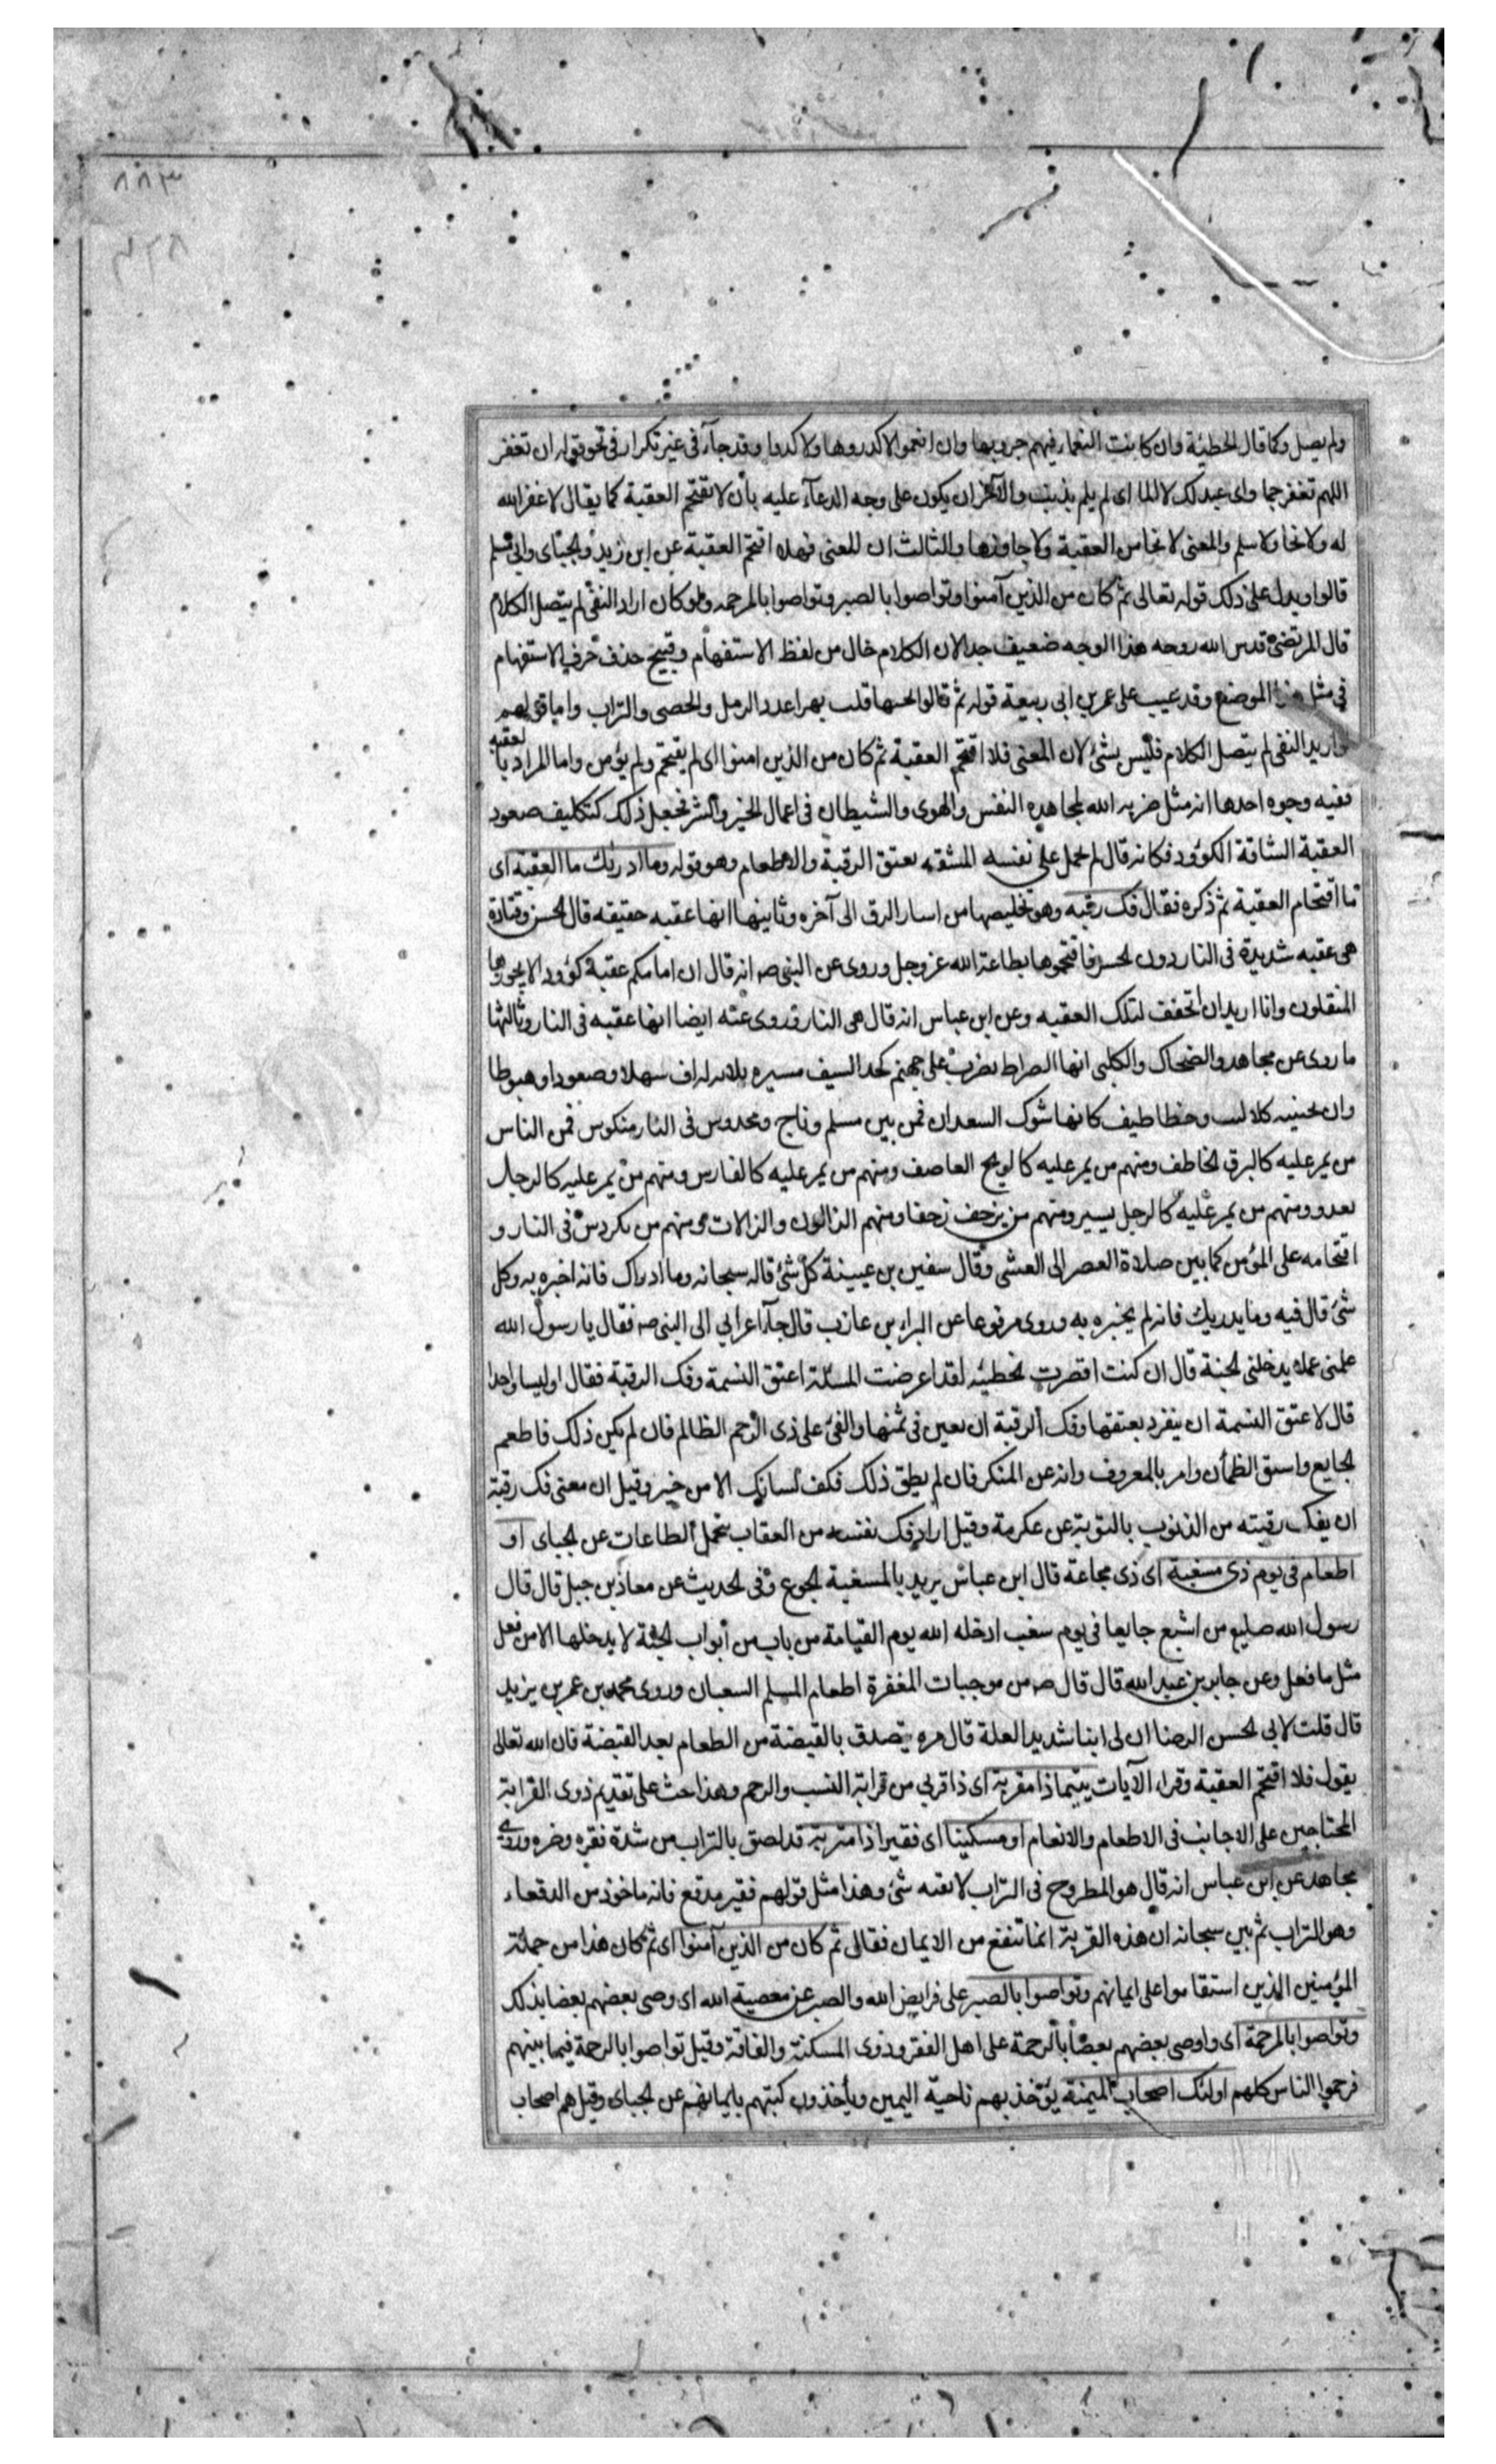 ٨٨٣
ولم يصل وكما قال الحطيئة وان كانت النعماء فيهم جزوا بها وان انعموا لا كدروها ولا كدوا وقد جآء فى غير تكرار فى نحو قوله ان تغفر
اللهم تغفر جما واى عبد لك لا الما اى لم يلم بذنب والآخر ان يكون على وجه الدعآء عليه بأن لا يقتحم العقبة كما يقال لا غفر الله
له ولا نجا ولا سلم والمعنى لا نجا من العقبة ولا جاوزها والثالث ان المعنى فهلا اقتحم العقبة عن ابن زيد والجبائى وابى مسلم
قالوا ويدل على ذلك قوله تعالى ثم كان من الذين آمنوا وتواصوا بالصبر وتواصوا بالمرحمه ولو كان اراد النفى لم يتصل الكلام
قال المرتضى قدس الله روحه هذا الوجه ضعيف جدا لان الكلام خال من لفظ الاستفهام وقبيح حذف حرف الاستفهام
فى مثل هذا الموضع وقد عيب على عمر بن ابى ربيعة قوله ثم قالوا تحبها قلت بهرا عدد الرمل والحصى والتراب واما قولهم
لو اريد النفى لم يتصل الكلام فليس بشئ لان المعنى فلا اقتحم العقبة ثم كان من الذين امنوا اى لم يقتحم ولم يؤمن واما المراد بالعقبه
ففيه وجوه احدها انه مثل ضربه الله لمجاهده النفس والهوى والشيطان فى اعمال الخير والشر فجعل ذلك كتكليف صعود
العقبة الشاقة الكؤود فكانه قال لم يحمل على نفسه المشقه بعتق الرقبة والاطعام وهو قوله وما ادريك ما العقبة اى
ما اقتحام العقبة ثم ذكره فقال فك رقبه وهو تخليصها من اسار الرق الى آخره وثانيها انها عقبه حقيقه قال الحسن وقتادة
هى عقبه شديدة فى النار دون الجسر فاقتحموها بطاعة الله عز وجل وروى عن النبى صه انه قال ان امامكم عقبة كؤودا لا يجوزها
المثقلون وانا اريد ان اتخفف لتلك العقبه وعن ابن عباس انه قال هى النار وروى عنه ايضا انها عقبه فى النار وثالثها
ما روى عن مجاهد والضحاك والكلبى انها الصراط يضرب على جهنم كحد السيف مسيره ثلاثه الاف سهلا وصعودا وهبوطا
وان بجنبيه كلاليب وخطاطيف كانها شوك السعدان فمن بين مسلم وناج ومخدوس فى النار منكوس فمن الناس
من يمر عليه كالبرق الخاطف ومنهم من يمر عليه كالريح العاصف ومنهم من يمر عليه كالفارس ومنهم من يمر عليه كالرجل
يعدو ومنهم من يمر عليه كالرجل يسير ومنهم من يزحف زحفا ومنهم الزالون والزالات ومنهم من يكردس فى النار و
اقتحامه على المؤمن كما بين صلاة العصر الى العشى وقال سفين بن عيينة كل شئ قاله سبحانه وما ادراك فانه اخبره به وكل
شئ قال فيه وما يدريك فانه لم يخبره به وروى مرفوعا عن البراء بن عازب قال جآء اعرابي الى النبى صه فقال يا رسول الله
علمنى عملا يدخلنى الجنة قال ان كنت اقصرت الخطبه لقد اعرضت المسئلة اعتق النسمة وفك الرقبة فقال اوليسا واحدا
قال لا عتق النسمة ان ينفرد بعتقها وفك الرقبة ان يعين فى ثمنها والفئ على ذى الرحم الظالم فان لم يكن ذلك فاطعم
الجايع واسق الظمأن وامر بالمعروف وانه عن المنكر فان لم يطق ذلك فكف لسانك الا من خير وقيل ان معنى فك رقبة
ان يفك رقبته من الذنوب بالتوبة عن عكرمة وقيل اراد فك نفسه من العقاب بتحمل الطاعات عن الجباى او
اطعام فى يوم ذى مسغبة اى ذى مجاعة قال ابن عباس يريد بالمسغبة الجوع وفى الحديث عن معاذ بن جبل قال قال
رسول الله صليع من اشبع جايعا فى يوم سغب ادخله الله يوم القيامة من باب من أبواب الجنة لا يدخلها الا من فعل
مثل ما فعل وعن جابر بن عبد الله قال قال صه من موجبات المغفرة اطعام المسلم السعبان وروى محمد بن عمر بن يزيد
قال قلت لابى الحسن الرضا ان لى ابنا شديد العلة قال مره يتصدق بالقبضة من الطعام بعد القبضة فان الله تعالى
يقول فلا اقتحم العقبة وقراء الآيات يتيما ذا مقربة اى ذا قربي من قرابة النسب والرحم وهذا حث على تقديم ذوى القرابة
المحتاجين على الاجانب فى الاطعام والانعام او مسكينا اى فقيرا ذا متربة قد لصق بالتراب من شدة فقره وضره وروى
مجاهد عن ابن عباس انه قال هو المطروح فى التراب لا يقيه شئ وهذا مثل قولهم فقير مدقع فانه ماخوذ من الدقعاء
وهو التراب ثم بين سبحانه ان هذه القربة انما تنفع من الايمان فقال ثم كان من الذين آمنوا اى ثم كان هذا من جملة
المؤمنين الذين استقاموا على ايمانهم وتواصوا بالصبر على فرايض الله والصبر عن معصية الله اى وصى بعضهم بعضا بذلك
وتواصوا بالمرحمة اى واوصى بعضهم بعضا بالرحمة على اهل الفقر وذوى المسكنة والفاقة وقيل تواصوا بالرحمة فيما بينهم
فرحموا الناس كلهم اولئك اصحاب الميمنة يؤخذ بهم ناحية اليمين ويأخذون كتبهم بايمانهم عن الجباى وقيل هم اصحاب